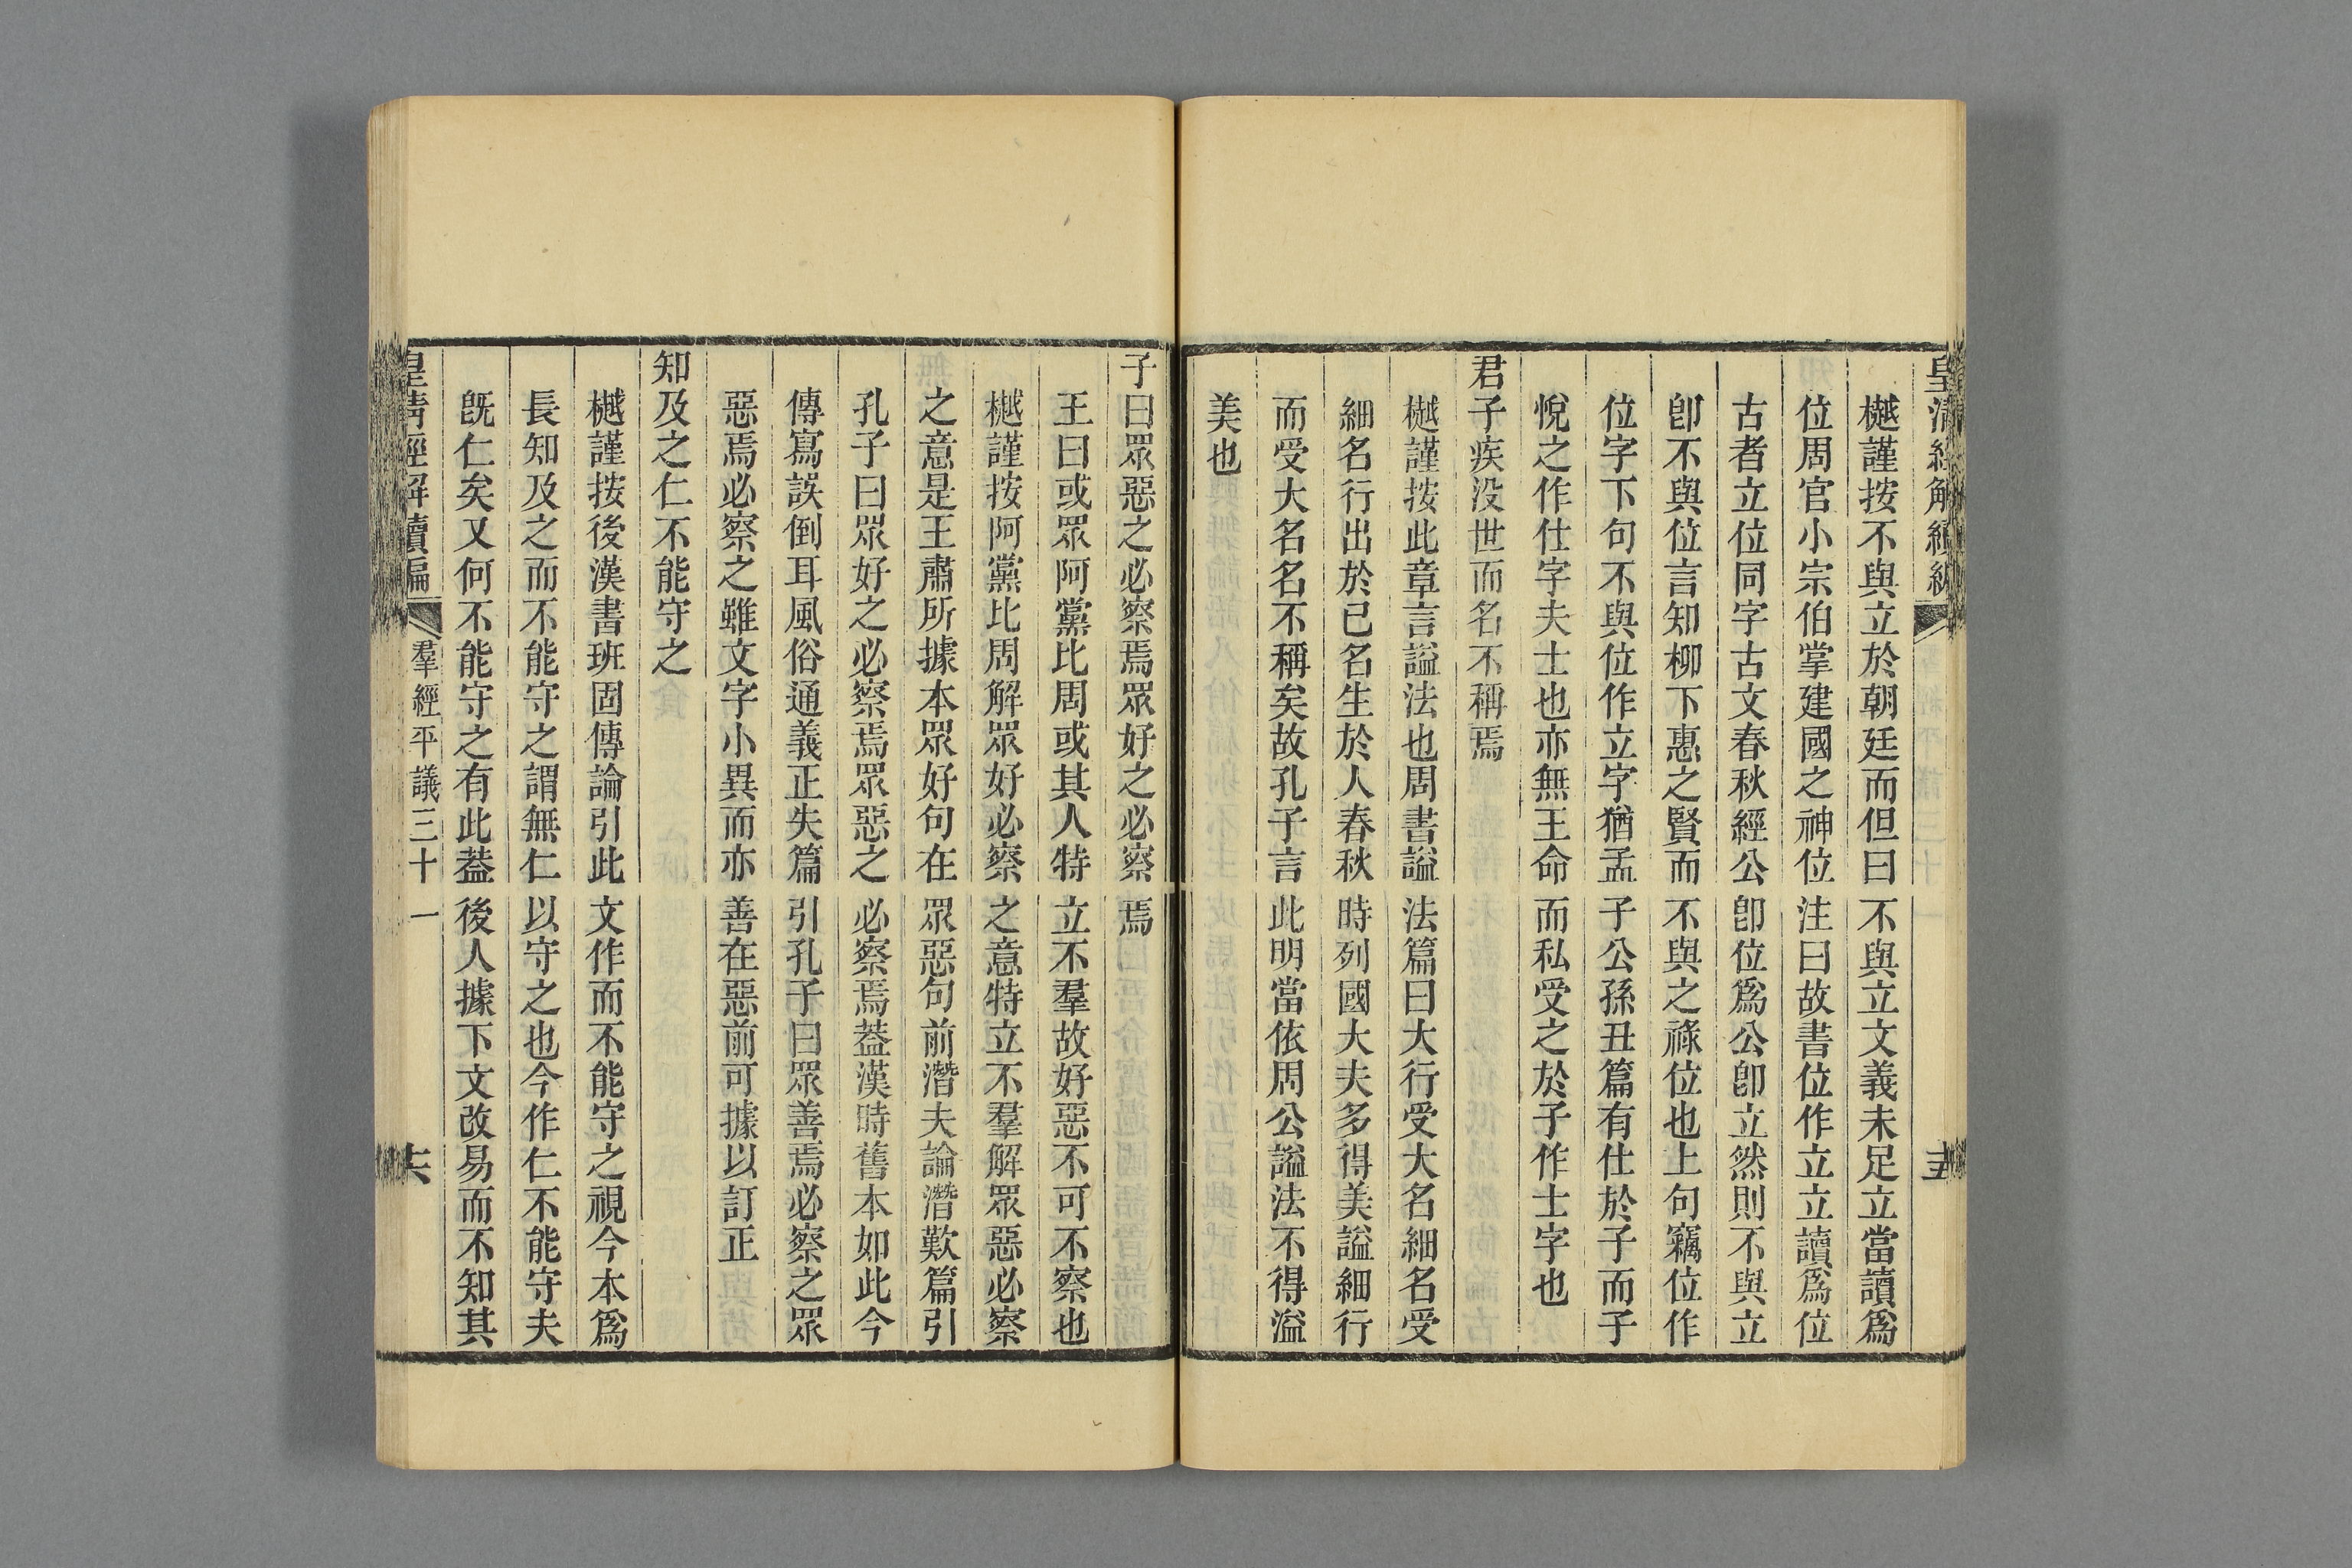 皇清經解續編
十五
樾謹按不與立於朝廷而但曰不與立文義未足立當讀爲
位周官小宗伯掌建國之神位注曰故書位作立立讀爲位
古者立位同字古文春秋經公卽位爲公卽立然則不與立
卽不與位言知柳下惠之賢而不與之祿位也上句竊位作
位字下句不與位作立字猶孟子公孫丑篇有仕於子而子
悅之作仕字夫士也亦無王命而私受之於子作士字也
君子疾没世而名不稱焉
樾謹按此章言謚法也周書謚法篇曰大行受大名細名受
細名行出於已名生於人春秋時列國大夫多得美謚細行
而受大名名不稱矣故孔子言此明當依周公謚法不得溢
美也
子曰眾惡之必察焉眾好之必察焉
王曰或眾阿黨比周或其人特立不羣故好惡不可不察也
樾謹按阿黨比周解眾好必察之意特立不羣解眾惡必察
之意是王肅所據本眾好句在眾惡句前潛夫論潛歎篇引
孔子曰眾好之必察焉眾惡之必察焉葢漢時舊本如此今
傳寫誤倒耳風俗通義正失篇引孔子曰眾善焉必察之眾
惡焉必察之雖文字小異而亦善在惡前可據以訂正
知及之仁不能守之
樾謹按後漢書班固傳論引此文作而不能守之視今本爲
長知及之而不能守之謂無仁以守之也今作仁不能守夫
旣仁矣又何不能守之有此葢後人據下文改易而不知其
皇清經解續編
羣經平議三十一
十六